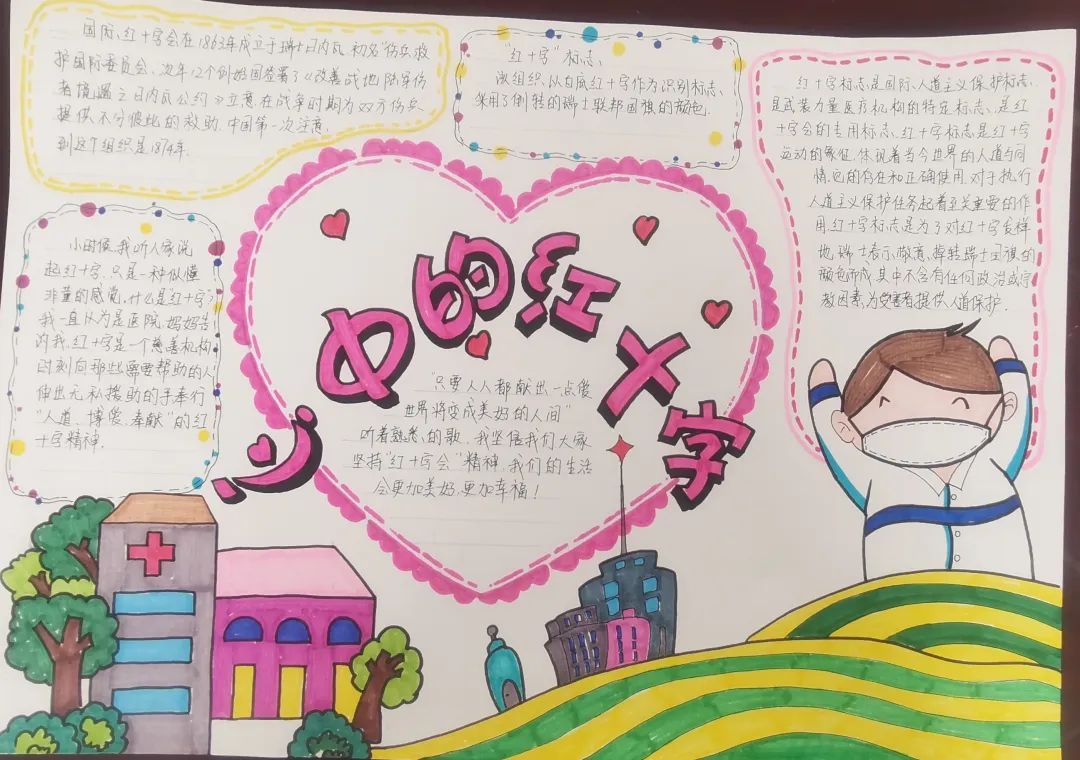 国际红十字会在1863年成立于瑞士日内瓦初名"伤兵救
护国际委员会、次年12个创始国签署了《改善战地陆军伤
者境遇之日内瓦公约》立意在战争时期为双方伤兵
提供不分彼此的救助.中国第一次注意.
到这个组织是1874年.
"红十字"标志、
该组织以白底红十字作为识别标志、
采用了倒转的瑞士联邦国旗的颜色.
红十字标志是国际人道主义保护标志、
是武装力量医疗机构的特定标志、是红
十字会的专用标志、红十字标志是红十字
运动的象征.体现着当今世界的人道与同
情.它的存在和正确使用.对于执行
人道主义保护任务起着至关重要的作
用.红十字标志是为了对红十字发祥
地.瑞士表示敬意.掉转瑞士国旗的
颜色而成.其中不含有任何政治或宗
教因素.为受害者提供人道保护.
小时候.我听人家说
起红十字.只是一种似懂
非董的感觉.什么是红十字"
我一直认为是医院.妈妈告
诉我.红十字是一个慈善机构
时刻向那些需要帮助的人
伸出无私援助的手奉行
"人道、博爱、奉献"的红
十字精神.
心中的红十字
"只要人人都献出一点爱
世界将变成美好的人间"
听着熟悉的歌.我坚信我们大家
坚持"红十字会"精神.我们的生活
会更加美好.更加幸福！